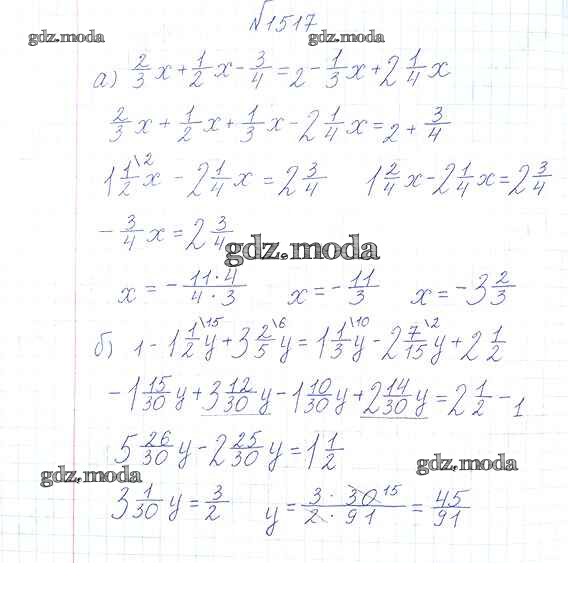 №1517
gdz.moda gdz.moda
а) 2/3 x + 1/2 x - 3/4 = 2 - 1/3 x + 2 1/4 x
2/3 x + 1/2 x + 1/3 x - 2 1/4 x = 2 + 3/4
1 1/2 \2 x - 2 1/4 x = 2 3/4 1 2/4 x - 2 1/4 x = 2 3/4
- 3/4 x = 2 3/4
gdz.moda
x = - 11·4/4·3 x = - 11/3 x = -3 2/3
б) 1 - 1 1/2 \15 y + 3 2/5 \6 y = 1 1/3 \10 y - 2 7/15 \2 y + 2 1/2
-1 15/30 y + 3 12/30 y - 1 10/30 y + 2 14/30 y = 2 1/2 - 1
5 26/30 y - 2 25/30 y = 1 1/2
gdz.moda gdz.moda
3 1/30 y = 3/2 y = 3·30 15/2·91 = 45/91